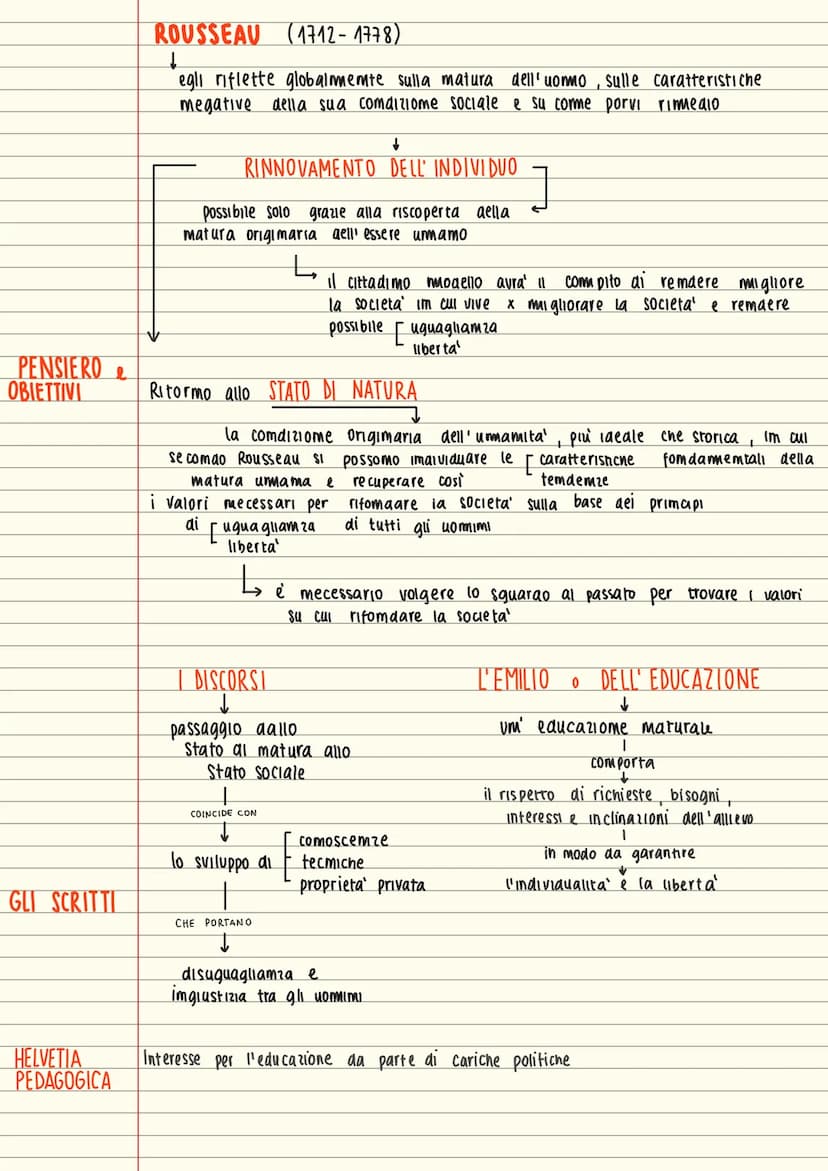 ROUSSEAU (1712-1778)
↓
egli riflette globalmente sulla natura dell'uomo, sulle caratteristiche
negative della sua condizione sociale e su come porvi rimedio
↓
RINNOVAMENTO DELL'INDIVIDUO
possibile solo grazie alla riscoperta della
natura originaria dell'essere umano
il cittadino modello avrà il compito di rendere migliore
la società in cui vive x migliorare la società e rendere
possibile [ uguaglianza
libertà
PENSIERO e
OBIETTIVI
Ritorno allo STATO DI NATURA
la condizione originaria dell'umanità, più ideale che storica, in cui
secondo Rousseau si possono individuare le [ caratteristiche fondamentali della
natura umana e recuperare così tendenze
i valori necessari per rifondare la società sulla base dei principi
di [ uguaglianza di tutti gli uomini
libertà
è necessario volgere lo sguardo al passato per trovare i valori
su cui rifondare la società
GLI SCRITTI
I DISCORSI
↓
passaggio dallo
stato di natura allo
stato sociale
COINCIDE CON
↓
lo sviluppo di [ conoscenze
tecniche
proprietà privata
CHE PORTANO
↓
disuguaglianza e
ingiustizia tra gli uomini
L'EMILIO o DELL'EDUCAZIONE
↓
un'educazione naturale
comporta
↓
il rispetto di richieste, bisogni,
interessi e inclinazioni dell'allievo
in modo da garantire
↓
l'individualità e la libertà
HELVETIA
PEDAGOGICA
Interesse per l'educazione da parte di cariche politiche